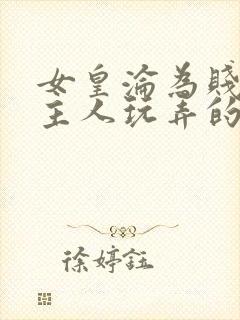 女皇淪為賤
主人玩弄的
徐婷鈺